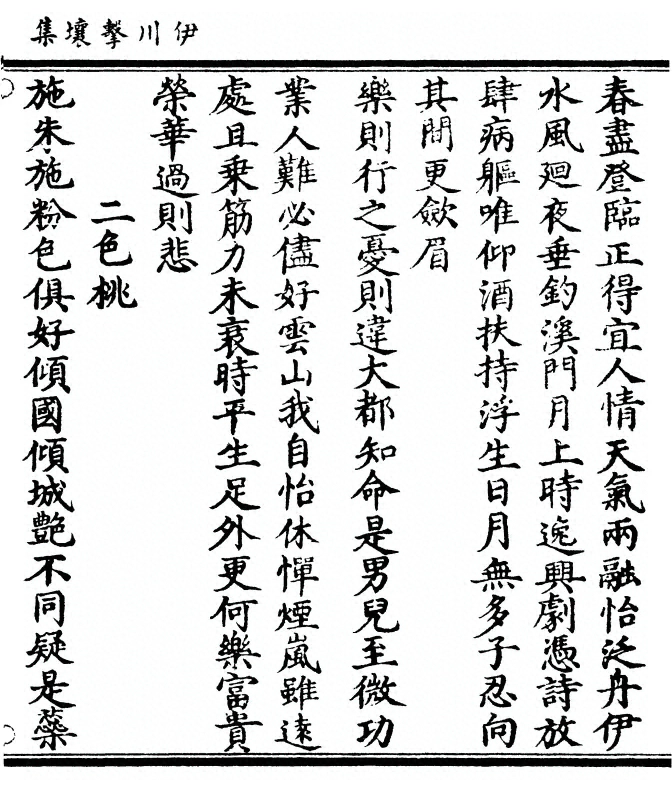 伊川擊壤集
春盡登臨正得宜人情天氣兩融怡泛舟伊
水風廻夜垂釣溪門月上時逸興劇憑詩放
肆病軀唯仰酒扶持浮生日月無多子忍向
其間更斂眉
樂則行之憂則違大都知命是男兒至微功
業人難必儘好雲山我自怡休憚煙嵐雖遠
處且乗筋力未衰時平生足外更何樂富貴
榮華過則悲
二色桃
施朱施粉色俱好傾國傾城艷不同疑是蘂